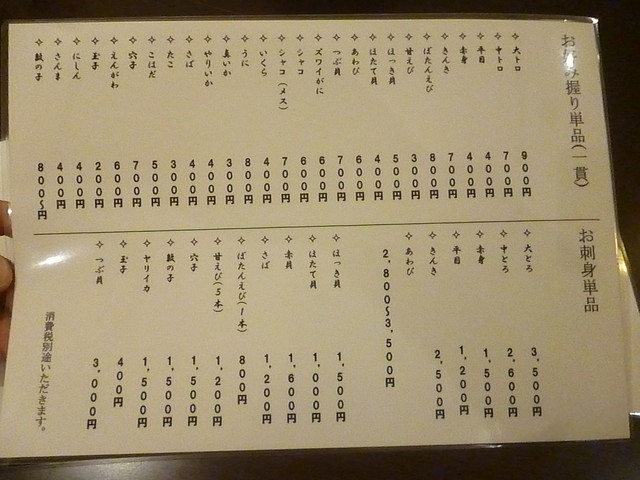 お好み握り単品(一貫)
✧ 大トロ 900円
✧ 中トロ 700円
✧ 平目 400円
✧ 赤身 400円
✧ きんき 700円
✧ ぼたんえび 800円
✧ 甘えび 300円
✧ ほっき貝 500円
✧ ほたて貝 400円
✧ あわび 600円
✧ つぶ貝 700円
✧ ズワイがに 600円
✧ シャコ 600円
✧ シャコ(メス) 700円
✧ いくら 400円
✧ うに 800円
✧ 真いか 300円
✧ やりいか 400円
✧ さば 400円
✧ たこ 300円
✧ こはだ 500円
✧ 穴子 700円
✧ えんがわ 600円
✧ 玉子 200円
✧ にしん 400円
✧ さんま 400円
✧ 数の子 800〜円
お刺身単品
✧ 大とろ 3,500円
✧ 中とろ 2,600円
✧ 赤身 1,500円
✧ 平目 1,200円
✧ きんき 2,500円
✧ あわび
2,800〜3,500円
✧ ほっき貝 1,500円
✧ ほたて貝 1,000円
✧ 赤貝 1,600円
✧ さば 1,200円
✧ ぼたんえび(1本) 800円
✧ 甘えび(5本) 1,200円
✧ 穴子 1,500円
✧ 数の子 1,500円
✧ ヤリイカ 1,500円
✧ 玉子 400円
✧ つぶ貝 3,000円
消費税別途いただきます。